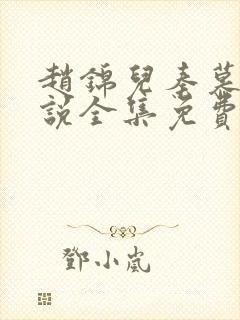 趙錦兒秦慕
說全集免費
鄧小嵐